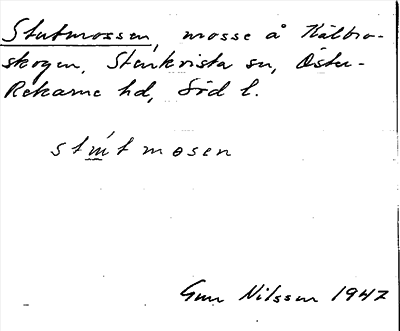 Stutmossen, mosse å Kälbro-
skogen, Stenkvista sn, Öster-
Rekarne hd, Söd l.
Gun Nilsson 1947